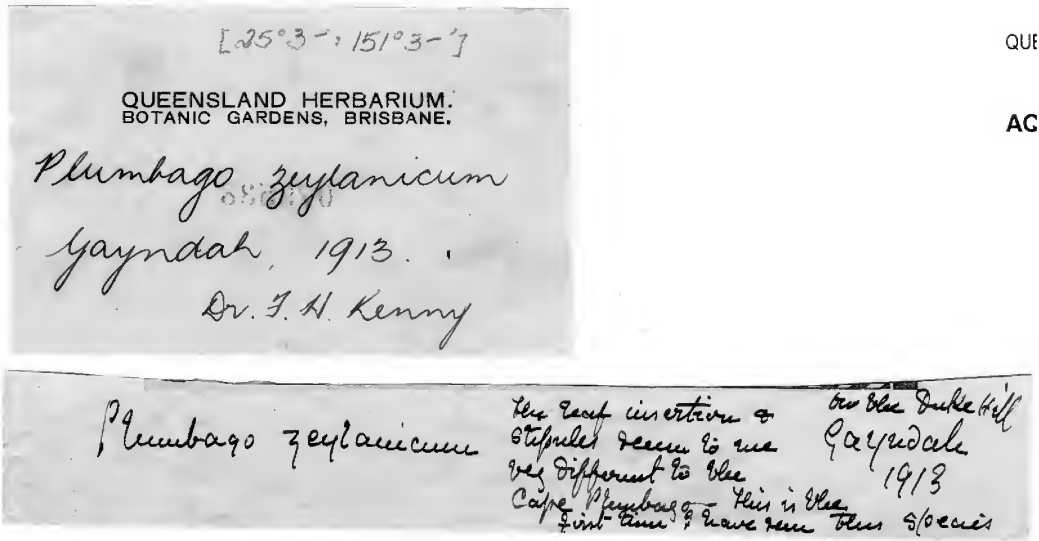 [25°3-; 151°3-']
QUEENSLAND HERBARIUM.
BOTANIC GARDENS, BRISBANE.
Plumbago zeylanicum
Gayndah, 1913.
Dr. F. H. Kenny
QUE
AQ
Plumbago zeylanicum
the leaf insertion &
stipules seem to me
very different to the
Cape Plumbago - this is the
first time I have seen this species
on the Duke Hill
Gayndah
1913